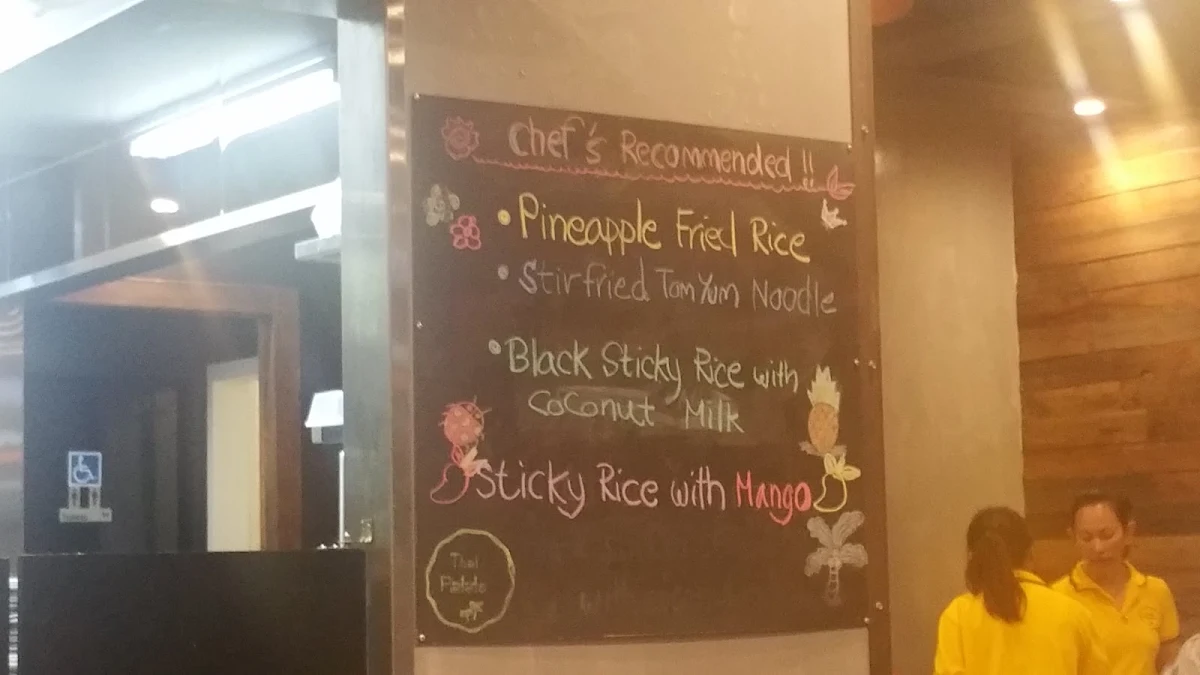 Chef's Recommended !!
• Pineapple Fried Rice
• Stirfried Tom Yum Noodle
• Black Sticky Rice with
Coconut Milk
Sticky Rice with Mango
Thai